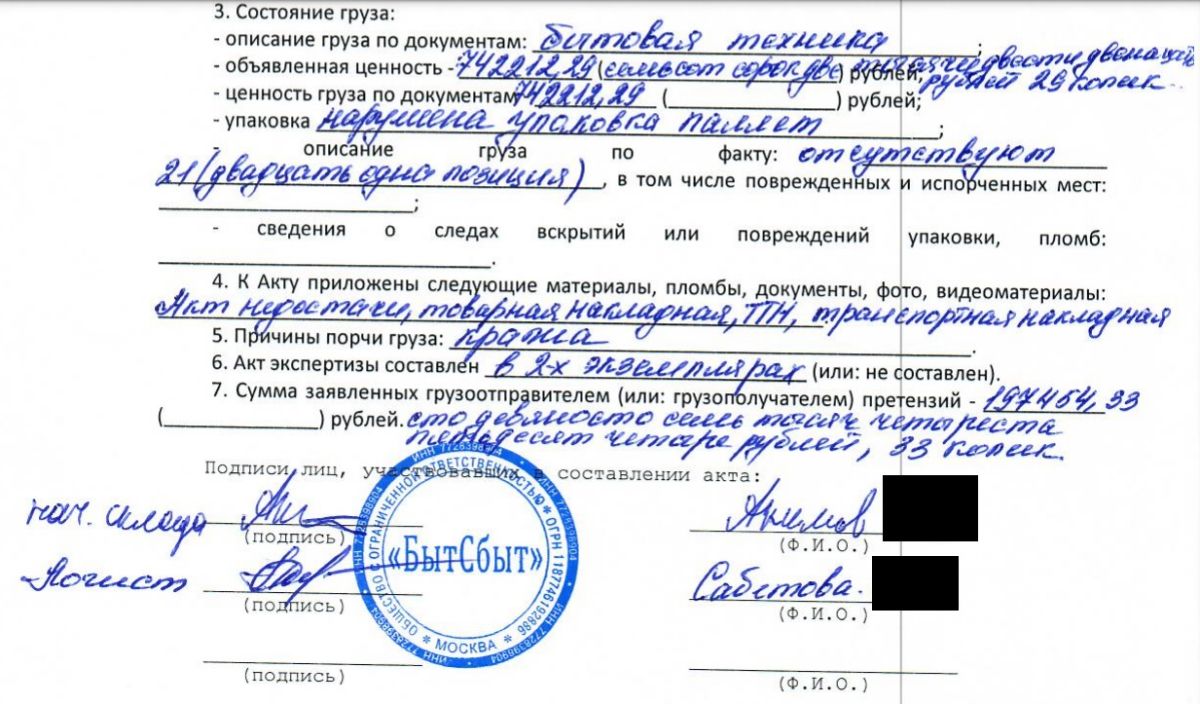 3. Состояние груза:
- описание груза по документам: бытовая техника;
- объявленная ценность - 742212,29 (семьсот сорок две тысячи двести двенадцать) рублей; рублей 29 копеек.
- ценность груза по документам 742212,29 (                ) рублей;
- упаковка нарушена упаковка паллет;
- описание груза по факту: отсутствуют
21 (двадцать одна позиция), в том числе поврежденных и испорченных мест:
;
- сведения о следах вскрытий или повреждений упаковки, пломб:
.
4. К Акту приложены следующие материалы, пломбы, документы, фото, видеоматериалы:
Акт недостачи, товарная накладная, ТТН, транспортная накладная
5. Причины порчи груза: кража.
6. Акт экспертизы составлен в 2-х экземплярах (или: не составлен).
7. Сумма заявленных грузоотправителем (или: грузополучателем) претензий - 197454,33
(                ) рублей. сто девяносто семь тысяч четыреста
пятьдесят четыре рублей, 33 копеек.
Подписи лиц, участвовавших в составлении акта:
нач. склада Акимов
(подпись) (Ф.И.О.)
Логист Сабетова.
(подпись) (Ф.И.О.)
(подпись) (Ф.И.О.)
ОБЩЕСТВО С ОГРАНИ�ченной ОТВЕТСТВЕННОСТЬЮ * ОГРН 1187746192886 * МОСКВА *
ИНН 7728398904 * ИНН 7728398904 * ИНН 7728398904 * ИНН 7728398904
«БытСбыт»